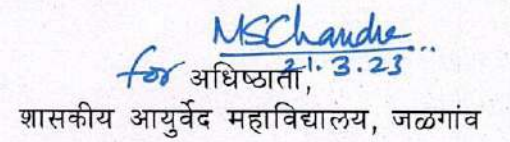 MSChandre...
21.3.23
for अधिष्ठाता,
शासकीय आयुर्वेद महाविद्यालय, जळगांव